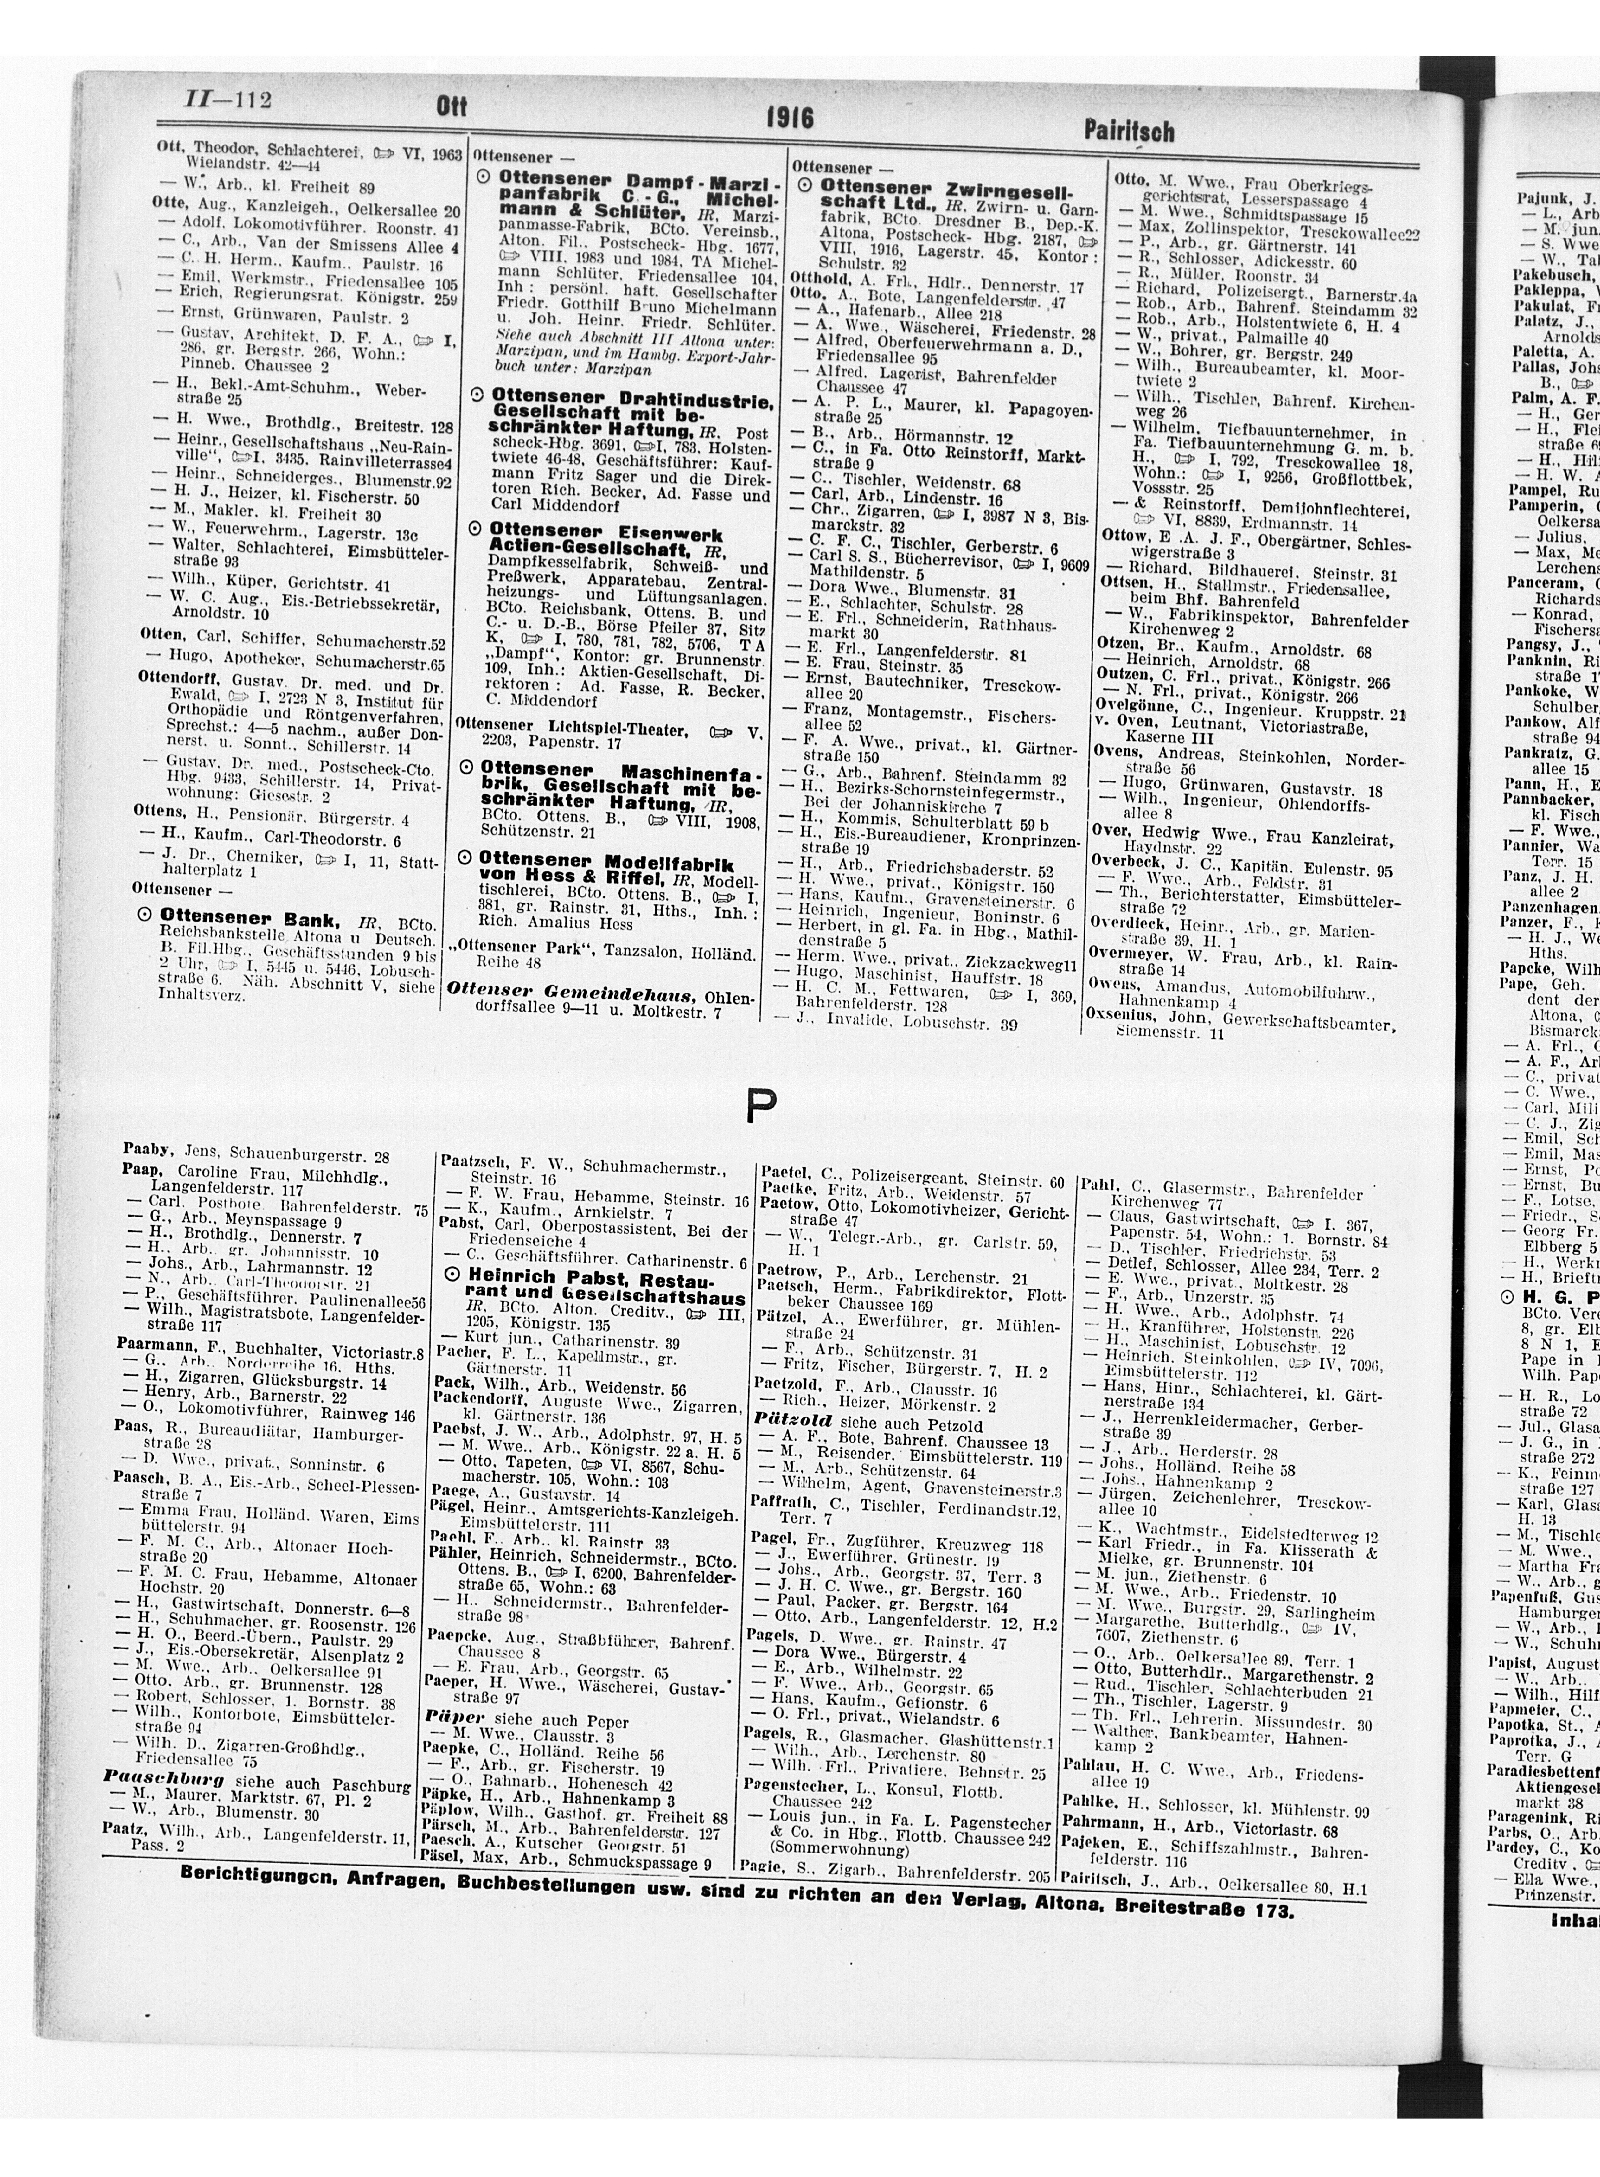 II—112
Ott
1916
Pairitsch
Ott, Theodor, Schlachterei, VI, 1963
Wielandstr. 42—44
— W., Arb., kl. Freiheit 89
Otte, Aug., Kanzleigeh., Oelkersallee 20
— Adolf, Lokomotivführer, Roonstr. 41
— C., Arb., Van der Smissens Allee 4
— C. H. Herm., Kaufm., Paulstr. 16
— Emil, Werkmstr., Friedensallee 105
— Erich, Regierungsrat, Königstr. 259
— Ernst, Grünwaren, Paulstr. 2
— Gustav, Architekt, D. F. A., I,
286, gr. Bergstr. 266, Wohn.:
Pinneb. Chaussee 2
— H., Bekl.-Amt-Schuhm., Weber-
straße 25
— H. Wwe., Brothdlg., Breitestr. 128
— Heinr., Gesellschaftshaus „Neu-Rain-
ville“, I, 3435, Rainvilleterrasse4
— Heinr., Schneiderges., Blumenstr.92
— H. J., Heizer, kl. Fischerstr. 50
— M., Makler, kl. Freiheit 30
— W., Feuerwehrm., Lagerstr. 13c
— Walter, Schlachterei, Eimsbütteler-
straße 93
— Wilh., Küper, Gerichtstr. 41
— W. C. Aug., Eis.-Betriebssekretär,
Arnoldstr. 10
Otten, Carl, Schiffer, Schumacherstr.52
— Hugo, Apotheker, Schumacherstr.65
Ottendorff, Gustav, Dr. med. und Dr.
Ewald, I, 2723 N 3, Institut für
Orthopädie und Röntgenverfahren,
Sprechst.: 4—5 nachm., außer Don-
nerst. u. Sonnt., Schillerstr. 14
— Gustav, Dr. med., Postscheck-Cto.
Hbg. 9433, Schillerstr. 14, Privat-
wohnung: Giesestr. 2
Ottens, H., Pensionär, Bürgerstr. 4
— H., Kaufm., Carl-Theodorstr. 6
— J. Dr., Chemiker, I, 11, Statt-
halterplatz 1
Ottensener —
⊙ Ottensener Bank, IR, BCto.
Reichsbankstelle Altona u Deutsch.
B. Fil.Hbg., Geschäftsstunden 9 bis
2 Uhr, I, 5445 u. 5446, Lobusch-
straße 6. Näh. Abschnitt V, siehe
Inhaltsverz.
Ottensener —
⊙ Ottensener Dampf-Marzi-
panfabrik C.-G., Michel-
mann & Schlüter, IR, Marzi-
panmasse-Fabrik, BCto. Vereinsb.,
Alton. Fil., Postscheck- Hbg. 1677,
VIII, 1983 und 1984, TA Michel-
mann Schlüter, Friedensallee 104,
Inh: persönl. haft. Gesellschafter
Friedr. Gotthilf Bruno Michelmann
u. Joh. Heinr. Friedr. Schlüter.
Siehe auch Abschnitt III Altona unter:
Marzipan, und im Hambg. Export-Jahr-
buch unter: Marzipan
⊙ Ottensener Drahtindustrie,
Gesellschaft mit be-
schränkter Haftung, IR. Post
scheck-Hbg. 3691, I, 783, Holsten-
twiete 46-48, Geschäftsführer: Kauf-
mann Fritz Sager und die Direk-
toren Rich. Becker, Ad. Fasse und
Carl Middendorf
⊙ Ottensener Eisenwerk
Actien-Gesellschaft, IR,
Dampfkesselfabrik, Schweiß- und
Preßwerk, Apparatebau, Zentral-
heizungs- und Lüftungsanlagen.
BCto. Reichsbank, Ottens. B. und
C.- u. D.-B., Börse Pfeiler 37, Sitz
K, I, 780, 781, 782, 5706, T A
„Dampf“, Kontor: gr. Brunnenstr.
109, Inh.: Aktien-Gesellschaft, Di-
rektoren: Ad. Fasse, R. Becker,
C. Middendorf
Ottensener Lichtspiel-Theater, V,
2203, Papenstr. 17
⊙ Ottensener Maschinenfa-
brik, Gesellschaft mit be-
schränkter Haftung, IR,
BCto. Ottens. B., VIII, 1908,
Schützenstr. 21
⊙ Ottensener Modellfabrik
von Hess & Riffel, IR, Modell-
tischlerei, BCto. Ottens. B., I,
381, gr. Rainstr. 31, Hths., Inh.:
Rich. Amalius Hess
„Ottensener Park“, Tanzsalon, Holländ.
Reihe 48
Ottenser Gemeindehaus, Ohlen-
dorffsallee 9—11 u. Moltkestr. 7
Ottensener —
⊙ Ottensener Zwirngesell-
schaft Ltd., IR, Zwirn- u. Garn-
fabrik, BCto. Dresdner B., Dep.-K.
Altona, Postscheck- Hbg. 2187,
VIII, 1916, Lagerstr. 45, Kontor:
Schulstr. 32
Otthold, A. Frl., Hdlr., Dennerstr. 17
Otto, A., Bote, Langenfelderstr. 47
— A., Hafenarb., Allee 218
— A. Wwe., Wäscherei, Friedenstr. 28
— Alfred, Oberfeuerwehrmann a. D.,
Friedensallee 95
— Alfred, Lagerist, Bahrenfelder
Chaussee 47
— A. P. L., Maurer, kl. Papagoyen-
straße 25
— B., Arb., Hörmannstr. 12
— C., in Fa. Otto Reinstorff, Markt-
straße 9
— C., Tischler, Weidenstr. 68
— Carl, Arb., Lindenstr. 16
— Chr., Zigarren, I, 3987 N 3, Bis-
marckstr. 32
— C. F. C., Tischler, Gerberstr. 6
— Carl S. S., Bücherrevisor, I, 9609
Mathildenstr. 5
— Dora Wwe., Blumenstr. 31
— E., Schlachter, Schulstr. 28
— E. Frl., Schneiderin, Rathhaus-
markt 30
— E. Frl., Langenfelderstr. 81
— E. Frau, Steinstr. 35
— Ernst, Bautechniker, Tresckow-
allee 20
— Franz, Montagemstr., Fischers-
allee 52
— F. A. Wwe., privat., kl. Gärtner-
straße 150
— G., Arb., Bahrenf. Steindamm 32
— H., Bezirks-Schornsteinfegermstr.,
Bei der Johanniskirche 7
— H., Kommis, Schulterblatt 59 b
— H., Eis.-Bureaudiener, Kronprinzen-
straße 19
— H., Arb., Friedrichsbaderstr. 52
— H. Wwe., privat., Königstr. 150
— Hans, Kaufm., Gravensteinerstr. 6
— Heinrich, Ingenieur, Boninstr. 6
— Herbert, in gl. Fa. in Hbg., Mathil-
denstraße 5
— Herm. Wwe., privat., Zickzackweg11
— Hugo, Maschinist, Hauffstr. 18
— H. C. M., Fettwaren, I, 369,
Bahrenfelderstr. 128
— J., Invalide, Lobuschstr. 39
Otto, M. Wwe., Frau Oberkriegs-
gerichtsrat, Lesserspassage 4
— M. Wwe., Schmidtspassage 15
— Max, Zollinspektor, Tresckowallee22
— P., Arb., gr. Gärtnerstr. 141
— R., Schlosser, Adickesstr. 60
— R., Müller, Roonstr. 34
— Richard, Polizeisergt., Barnerstr.4a
— Rob., Arb., Bahrenf. Steindamm 32
— Rob., Arb., Holstentwiete 6, H. 4
— W., privat., Palmaille 40
— W., Bohrer, gr. Bergstr. 249
— Wilh., Bureaubeamter, kl. Moor-
twiete 2
— Wilh., Tischler, Bahrenf. Kirchen-
weg 26
— Wilhelm, Tiefbauunternehmer, in
Fa. Tiefbauunternehmung G. m. b.
H., I, 792, Tresckowallee 18,
Wohn.: I, 9256, Großflottbek,
Vossstr. 25
— & Reinstorff, Demijohnflechterei,
VI, 8839, Erdmannstr. 14
Ottow, E .A. J. F., Obergärtner, Schles-
wigerstraße 3
— Richard, Bildhauerei, Steinstr. 31
Ottsen, H., Stallmstr., Friedensallee,
beim Bhf. Bahrenfeld
— W., Fabrikinspektor, Bahrenfelder
Kirchenweg 2
Otzen, Br., Kaufm., Arnoldstr. 68
— Heinrich, Arnoldstr. 68
Outzen, C. Frl., privat., Königstr. 266
— N. Frl., privat., Königstr. 266
Ovelgönne, C., Ingenieur, Kruppstr. 21
v. Oven, Leutnant, Victoriastraße,
Kaserne III
Ovens, Andreas, Steinkohlen, Norder-
straße 56
— Hugo, Grünwaren, Gustavstr. 18
— Wilh., Ingenieur, Ohlendorffs-
allee 8
Over, Hedwig Wwe., Frau Kanzleirat,
Haydnstr. 22
Overbeck, J. C., Kapitän, Eulenstr. 95
— F. Wwe., Arb., Feldstr. 31
— Th., Berichterstatter, Eimsbütteler-
straße 72
Overdieck, Heinr., Arb., gr. Marien-
straße 39, H. 1
Overmeyer, W. Frau, Arb., kl. Rain-
straße 14
Owens, Amandus, Automobilfuhrw.,
Hahnenkamp 4
Oxsenius, John, Gewerkschaftsbeamter,
Siemensstr. 11
P
Paaby, Jens, Schauenburgerstr. 28
Paap, Caroline Frau, Milchhdlg.,
Langenfelderstr. 117
— Carl, Postbote, Bahrenfelderstr. 75
— G., Arb., Meynspassage 9
— H., Brothdlg., Dennerstr. 7
— H., Arb., gr. Johannisstr. 10
— Johs., Arb., Lahrmannstr. 12
— N., Arb., Carl-Theodorstr. 21
— P., Geschäftsführer, Paulinenallee56
— Wilh., Magistratsbote, Langenfelder-
straße 117
Paarmann, F., Buchhalter, Victoriastr.8
— G., Arb., Norderreihe 16, Hths.
— H., Zigarren, Glücksburgstr. 14
— Henry, Arb., Barnerstr. 22
— O., Lokomotivführer, Rainweg 146
Paas, R., Bureaudiätar, Hamburger-
straße 28
— D. Wwe., privat., Sonninstr. 6
Paasch, B. A., Eis.-Arb., Scheel-Plessen-
straße 7
— Emma Frau, Holländ. Waren, Eims
büttelerstr. 94
— F. M. C., Arb., Altonaer Hoch-
straße 20
— F. M. C. Frau, Hebamme, Altonaer
Hochstr. 20
— H., Gastwirtschaft, Donnerstr. 6—8
— H., Schuhmacher, gr. Roosenstr. 126
— H. O., Beerd.-Übern., Paulstr. 29
— J., Eis.-Obersekretär, Alsenplatz 2
— M. Wwe., Arb., Oelkersallee 91
— Otto, Arb., gr. Brunnenstr. 128
— Robert, Schlosser, 1. Bornstr. 38
— Wilh., Kontorbote, Eimsbütteler-
straße 94
— Wilh. D., Zigarren-Großhdlg.,
Friedensallee 75
Paaschburg siehe auch Paschburg
— M., Maurer, Marktstr. 67, Pl. 2
— W., Arb., Blumenstr. 30
Paatz, Wilh., Arb., Langenfelderstr. 11,
Pass. 2
Paatzsch, F. W., Schuhmachermstr.,
Steinstr. 16
— F. W. Frau, Hebamme, Steinstr. 16
— K., Kaufm., Arnkielstr. 7
Pabst, Carl, Oberpostassistent, Bei der
Friedenseiche 4
— C., Geschäftsführer, Catharinenstr. 6
⊙ Heinrich Pabst, Restau-
rant und Gesellschaftshaus
IR, BCto. Alton. Creditv., III,
1205, Königstr. 135
— Kurt jun., Catharinenstr. 39
Pacher, F. L., Kapellmstr., gr.
Gärtnerstr. 11
Pack, Wilh., Arb., Weidenstr. 56
Packendorff, Auguste Wwe., Zigarren,
kl. Gärtnerstr. 136
Paebst, J. W., Arb., Adolphstr. 97, H. 5
— M. Wwe., Arb., Königstr. 22 a. H. 5
— Otto, Tapeten, VI, 8567, Schu-
macherstr. 105, Wohn.: 103
Paege, A., Gustavstr. 14
Pägel, Heinr., Amtsgerichts-Kanzleigeh.
Eimsbüttelerstr. 111
Paehl, F., Arb., kl. Rainstr 33
Pähler, Heinrich, Schneidermstr., BCto.
Ottens. B., I, 6200, Bahrenfelder-
straße 65, Wohn.: 63
— H., Schneidermstr., Bahrenfelder-
straße 98
Paepcke, Aug., Straßbführer, Bahrenf.
Chaussee 8
— E. Frau, Arb., Georgstr. 65
Paeper, H. Wwe., Wäscherei, Gustav-
straße 97
Päper siehe auch Peper
— M. Wwe., Clausstr. 3
Paepke, C., Holländ. Reihe 56
— F., Arb., gr. Fischerstr. 19
— O., Bahnarb., Hohenesch 42
Päpke, H., Arb., Hahnenkamp 3
Päplow, Wilh., Gasthof, gr. Freiheit 88
Pärsch, M., Arb., Bahrenfelderstr. 127
Paesch, A., Kutscher, Georgstr. 51
Päsel, Max, Arb., Schmuckspassage 9
Paetel, C., Polizeisergeant, Steinstr. 60
Paetke, Fritz, Arb., Weidenstr. 57
Paetow, Otto, Lokomotivheizer, Gericht-
straße 47
— W., Telegr.-Arb., gr. Carlstr. 59,
H. 1
Paetrow, P., Arb., Lerchenstr. 21
Paetsch, Herm., Fabrikdirektor, Flott-
beker Chaussee 169
Pätzel, A., Ewerführer, gr. Mühlen-
straße 24
— F., Arb., Schützenstr. 31
— Fritz, Fischer, Bürgerstr. 7, H. 2
Paetzold, F., Arb., Clausstr. 16
— Rich., Heizer, Mörkenstr. 2
Pätzold siehe auch Petzold
— A. F., Bote, Bahrenf. Chaussee 13
— M., Reisender, Eimsbüttelerstr. 119
— M., Arb., Schützenstr. 64
— Wilhelm, Agent, Gravensteinerstr.3
Paffrath, C., Tischler, Ferdinandstr.12,
Terr. 7
Pagel, Fr., Zugführer, Kreuzweg 118
— J., Ewerführer, Grünestr. 19
— Johs., Arb., Georgstr. 37, Terr. 3
— J. H. C. Wwe., gr. Bergstr. 160
— Paul, Packer, gr. Bergstr. 164
— Otto, Arb., Langenfelderstr. 12, H.2
Pagels, D. Wwe., gr. Rainstr. 47
— Dora Wwe., Bürgerstr. 4
— E., Arb., Wilhelmstr. 22
— F. Wwe., Arb., Georgstr. 65
— Hans, Kaufm., Gefionstr. 6
— O. Frl., privat., Wielandstr. 6
Pagels, R., Glasmacher, Glashüttenstr.1
— Wilh., Arb., Lerchenstr. 80
— Wilh. Frl., Privatiere, Behnstr. 25
Pagenstecher, L., Konsul, Flottb.
Chaussee 242
— Louis jun., in Fa. L. Pagenstecher
& Co. in Hbg., Flottb. Chaussee 242
(Sommerwohnung)
Pagie, S., Zigarb., Bahrenfelderstr. 205
Pahl, C., Glasermstr., Bahrenfelder
Kirchenweg 77
— Claus, Gastwirtschaft, I. 367,
Papenstr. 54, Wohn.: 1. Bornstr. 84
— D., Tischler, Friedrichstr. 53
— Detlef, Schlosser, Allee 234, Terr. 2
— E. Wwe., privat., Moltkestr. 28
— F., Arb., Unzerstr. 35
— H. Wwe., Arb., Adolphstr. 74
— H., Kranführer, Holstenstr. 226
— H., Maschinist, Lobuschstr. 12
— Heinrich, Steinkohlen, IV, 7096,
Eimsbüttelerstr. 112
— Hans, Hinr., Schlachterei, kl. Gärt-
nerstraße 134
— J., Herrenkleidermacher, Gerber-
straße 39
— J., Arb., Herderstr. 28
— Johs., Holländ. Reihe 58
— Johs., Hahnenkamp 2
— Jürgen, Zeichenlehrer, Tresckow-
allee 10
— K., Wachtmstr., Eidelstedterweg 12
— Karl Friedr., in Fa. Klisserath &
Mielke, gr. Brunnenstr. 104
— M. jun., Ziethenstr. 6
— M. Wwe., Arb., Friedenstr. 10
— M. Wwe., Burgstr. 29, Sarlingheim
— Margarethe, Butterhdlg., IV,
7607, Ziethenstr. 6
— O., Arb., Oelkersallee 89, Terr. 1
— Otto, Butterhdlr., Margarethenstr. 2
— Rud., Tischler, Schlachterbuden 21
— Th., Tischler, Lagerstr. 9
— Th. Frl., Lehrerin, Missundestr. 30
— Walther, Bankbeamter, Hahnen-
kamp 2
Pahlau, H. C. Wwe., Arb., Friedens-
allee 19
Pahlke, H., Schlosser, kl. Mühlenstr. 99
Pahrmann, H., Arb., Victoriastr. 68
Pajeken, E., Schiffszahlmstr., Bahren-
felderstr. 116
Pairitsch, J., Arb., Oelkersallee 80, H.1
Berichtigungen, Anfragen, Buchbestellungen usw. sind zu richten an den Verlag, Altona, Breitestraße 173.
Pajunk, J.
— L., Arb
— M. jun.
— S. Wwe
— W., Tal
Pakebusch,
Pakleppa,
Pakulat, F
Palatz, J.,
Arnolds
Paletta, A.
Pallas, Johs
B.,
Palm, A. F.
— H., Ger
— H., Flei
straße 69
— H., Hil
— H. W. A
Pampel, Ru
Pamperin,
Oelkersa
— Julius,
— Max, Me
Lerchens
Panceram,
Richards
— Konrad,
Fischersa
Pangsy, J.,
Panknin, Ri
straße 17
Pankoke, W
Schulber
Pankow, Alf
straße 94
Pankratz, G.
allee 15
Pann, H., E
Pannbacker,
kl. Fisch
— F. Wwe.,
Pannier, Wa
Terr. 15
Panz, J. H.
allee 2
Panzenhagen
Panzer, F.,
— H. J., We
Hths.
Papcke, Wilh
Pape, Geh.
dent der
Altona,
Bismarck
— A. Frl.,
— A. F., Ar
— C., privat
— C. Wwe.,
— Carl, Mili
— C. J., Zig
— Emil, Sch
— Emil, Mas
— Ernst, Po
— Ernst, Bu
— F., Lotse,
— Friedr.,
— Georg Fr.
Elbberg 5
— H., Werkm
— H., Brieftr
⊙ H. G. P
BCto. Vere
8, gr. Elb
8 N 1, E
Pape in
Wilh. Pap
— H. R., Lo
straße 72
— Jul., Glasa
— J. G., in
straße 272
— K., Feinm
straße 127
— Karl, Glasa
H. 13
— M., Tischle
— M. Wwe.,
— Martha Fra
— W., Arb., g
Papenfuß, Gus
Hamburger
— W., Arb.,
— W., Schuhm
Papist, August
— W., Arb.
— Wilh., Hilf
Papmeier, C.,
Papotka, St.,
Paprotka, J.,
Terr. G
Paradiesbettenf
Aktiengesel
markt 38
Paragenink, R
Parbs, O., Arb.
Pardey, C., Ko
Creditv.,
— Ella Wwe.,
Prinzenstr.
Inha